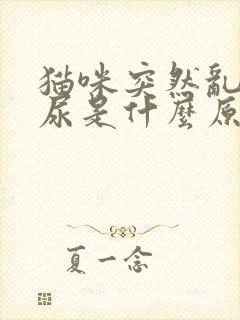 猫咪突然亂
尿是什麼原
夏一念